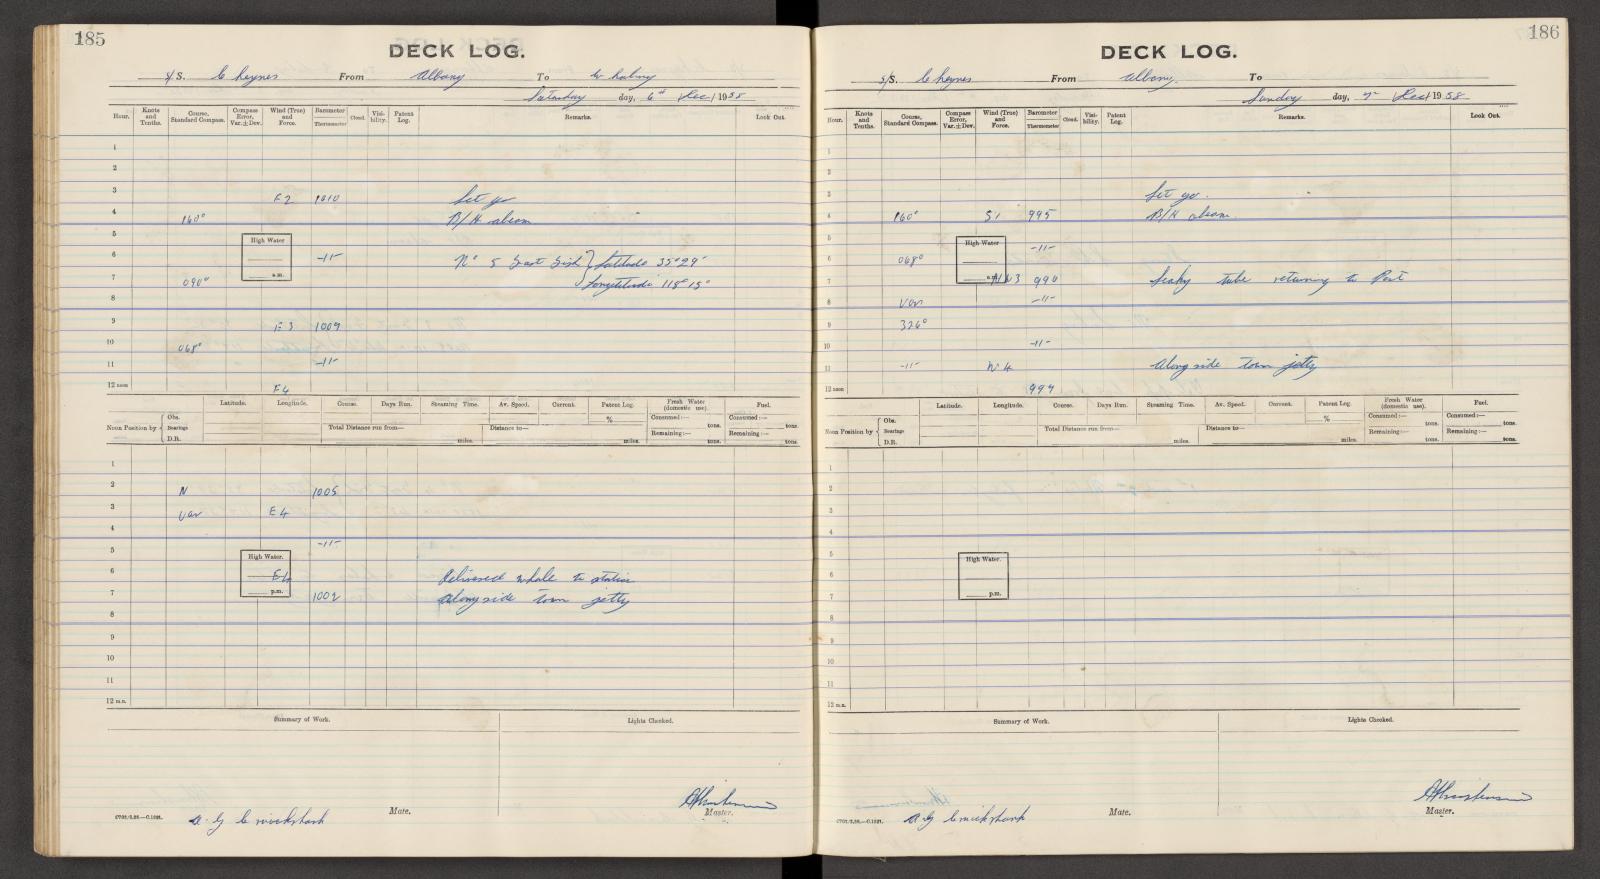 185
DECK LOG.
S/S. Cheynes From Albany To Whaling
Saturday day, 6th Dec/1958
Hour. Knots and Tenths. Course, Standard Compass. Compass Error, Var.±Dev. Wind (True) and Force. Barometer Thermometer Cloud. Visibility. Patent Log. Remarks. Look Out.
1
2
3 E2 1010 Let go
4 160° B/H abeam
5
High Water
6 -11- N° 5 East Sish } Latitude 35°29'
a.m.
7 090° Longtitude 118° 15°
8
9 E3 1009
10 068°
11 -11-
12 noon E4
Latitude. Longitude. Course. Days Run. Steaming Time. Av. Speed. Current. Patent Log. Fresh Water (domestic use). Fuel.
Noon Position by { Obs. Bearings D.R.
% Consumed:— tons. Consumed:— tons.
Total Distance run from— miles. Distance to— miles. Remaining:— tons. Remaining:— tons.
1
2 N 1005
3 Var E4
4
5 -11-
High Water.
6 E4 Delivered whale to station
p.m.
7 1002 Alongside town jetty
8
9
10
11
12 m.n.
Summary of Work. Lights Checked.
A G Cruickshank Mate. Master.
186
DECK LOG.
S/S. Cheynes From Albany. To
Sunday day, 7th Dec/1958
Hour. Knots and Tenths. Course, Standard Compass. Compass Error, Var.±Dev. Wind (True) and Force. Barometer Thermometer Cloud. Visibility. Patent Log. Remarks. Look Out.
1
2
3 Let go.
4 160° S1 995 B/H abeam.
5 -11-
High Water
6 068°
a.m.
7 NW3 990 Leaky tube returning to Port
8 Var -11-
9 326°
10 -11-
11 -11- W4 Alongside town jetty
12 noon 994
Latitude. Longitude. Course. Days Run. Steaming Time. Av. Speed. Current. Patent Log. Fresh Water (domestic use). Fuel.
Noon Position by { Obs. Bearings D.R.
% Consumed:— tons. Consumed:— tons.
Total Distance run from— miles. Distance to— miles. Remaining:— tons. Remaining:— tons.
1
2
3
4
5
High Water.
6
p.m.
7
8
9
10
11
12 m.n.
Summary of Work. Lights Checked.
A G Cruickshank Mate. Master.